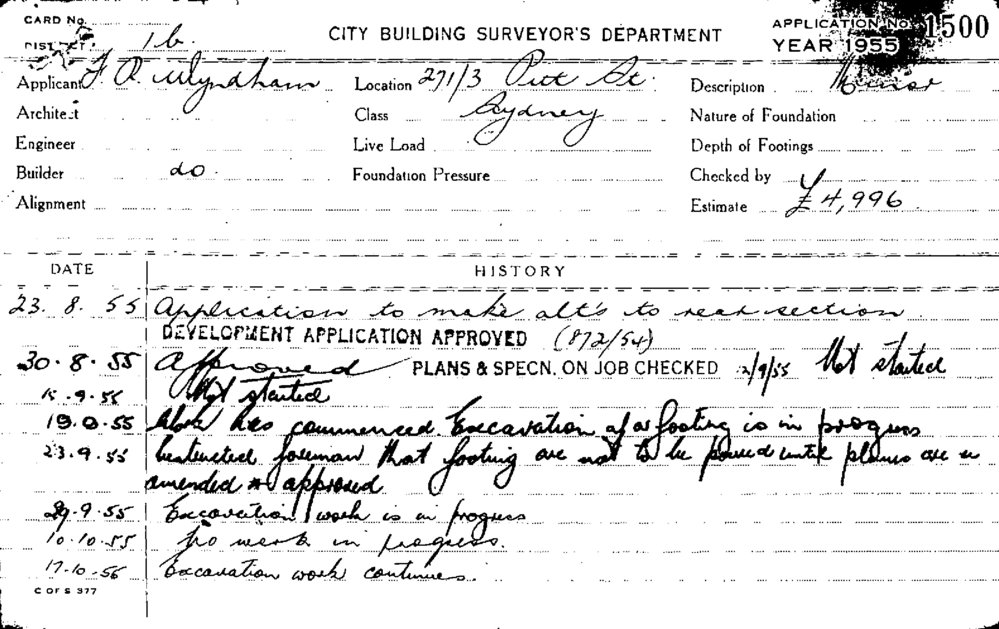 CARD No.
CITY BUILDING SURVEYOR'S DEPARTMENT
APPLICATION No. 1500
DISTRICT. 1b.
YEAR 1955
Applicant F. R. Wyndham Location 271/3 Pitt St. Description Minor
Architect Class Sydney Nature of Foundation
Engineer Live Load Depth of Footings
Builder do. Foundation Pressure Checked by
Alignment Estimate £4,996
DATE HISTORY
23. 8. 55 Application to make alt's to rear section
DEVELOPMENT APPLICATION APPROVED (872/54)
30.8.55 Approved PLANS & SPECN. ON JOB CHECKED 2/9/55 Not started
15.9.55 Not started
19.9.55 Work has commenced. Excavation of footing is in progress
23.9.55 Instructed foreman that footing are not to be poured until plans are
amended & approved
29.9.55 Excavation work is in progress
10.10.55 No work in progress.
17.10.55 Excavation work continues.
C OF S 377